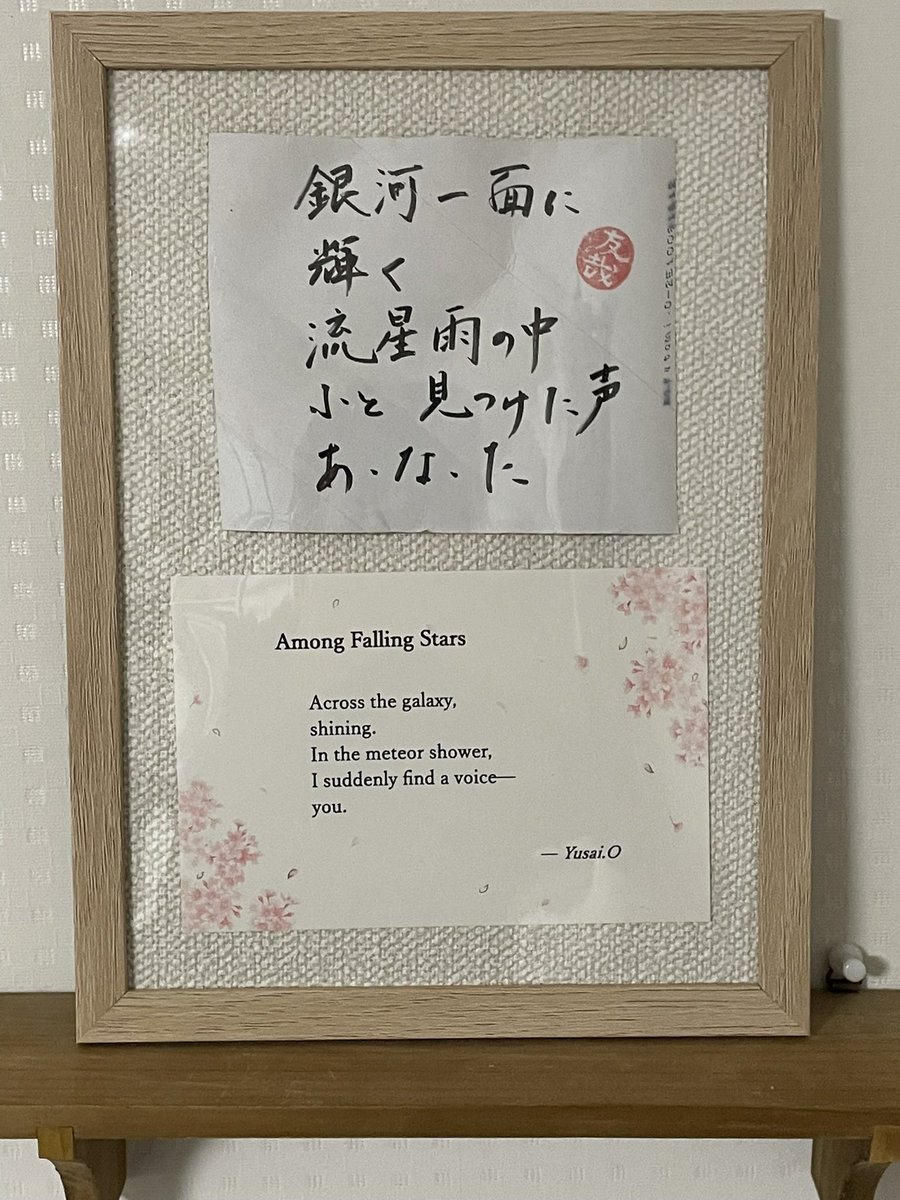 銀河一面に
輝く
流星雨の中
ふと 見つけた声
あ、な、た
友哉
Among Falling Stars
Across the galaxy,
shining.
In the meteor shower,
I suddenly find a voice—
you.
— Yusai.O